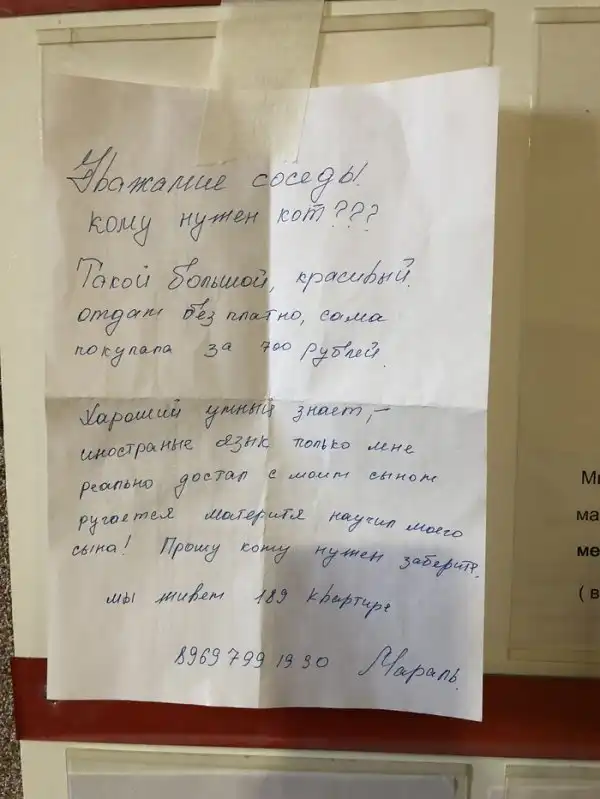 Уважамие соседы!
кому нужен кот???
Такой большой, красивый.
отдам без платно, сама
покупала за 700 рублей.
Хароший умный знает,–
иностраные язык только мне
реально достал с моим сыном
ругается материтя научил моего
сына! Прошу кому нужен заберите.
мы живем 189 квартире
8969 799 19 90 Мараль.
Ми
ма
ме
( в